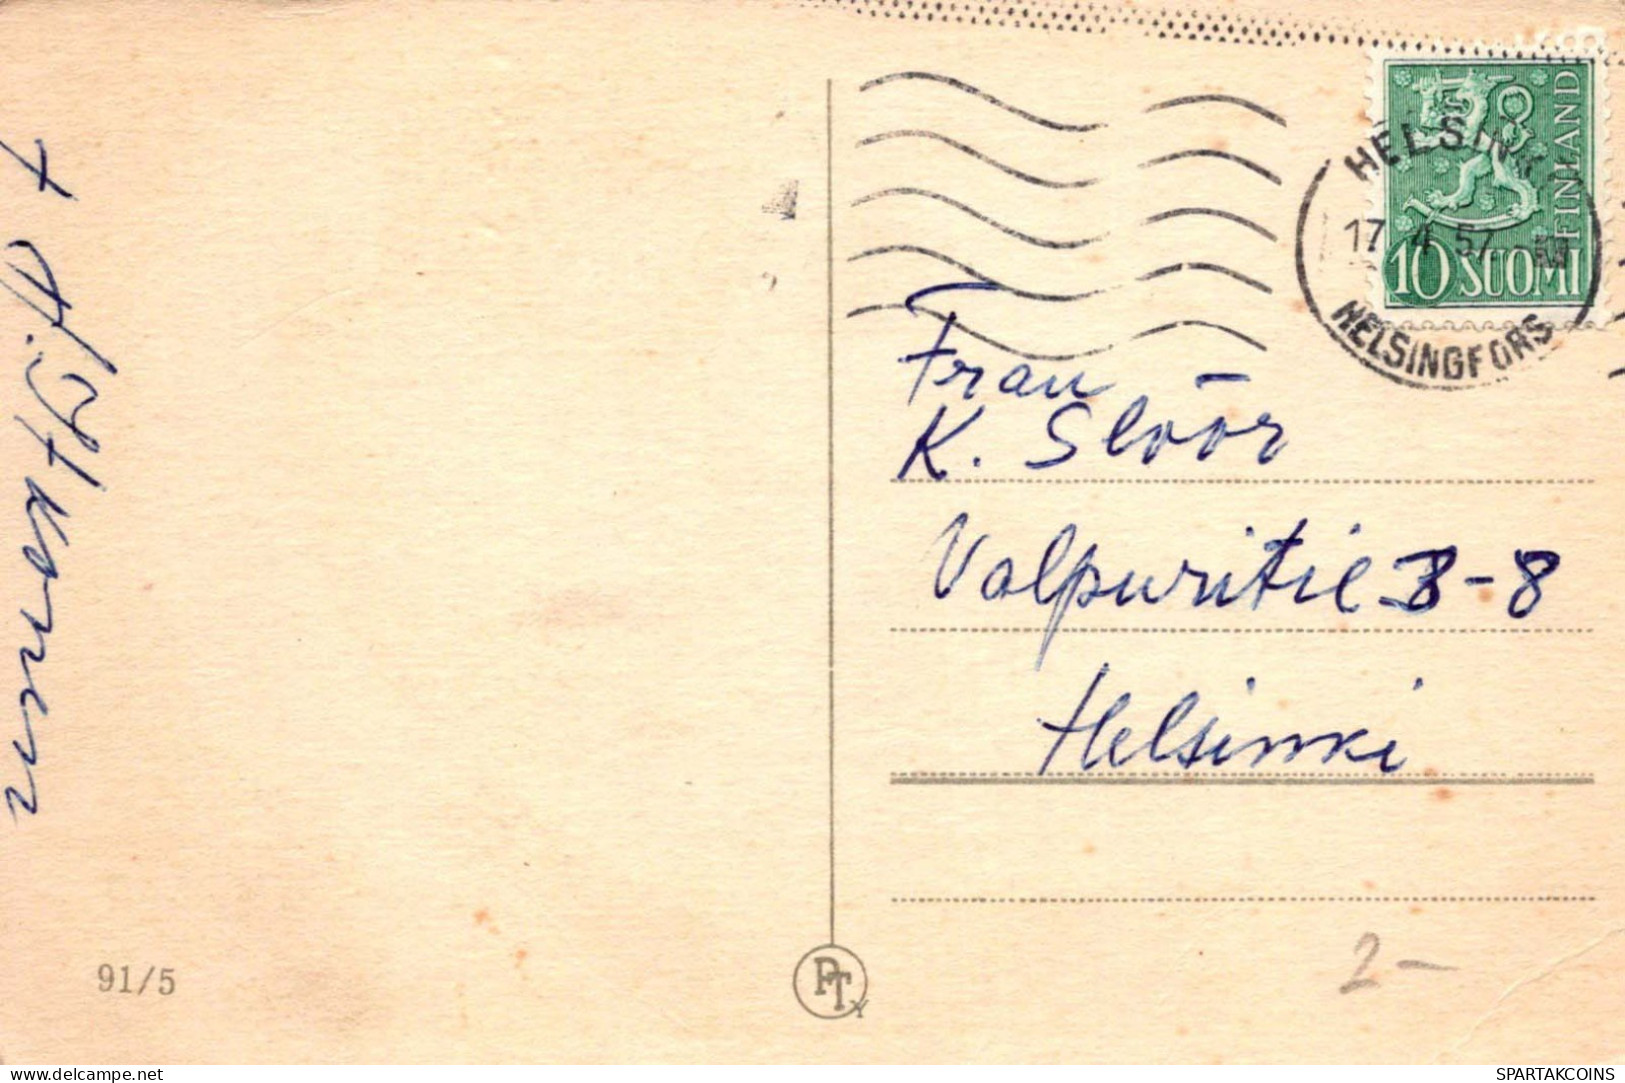 HELSINKI
17. 4. 57.
HELSINGFORS
FINLAND
10 SUOMI
Frau
K. Slöör
Valpuritie 3-8
Helsinki
2-
91/5
PTY
delcampe.net
SPARTAKCOINS